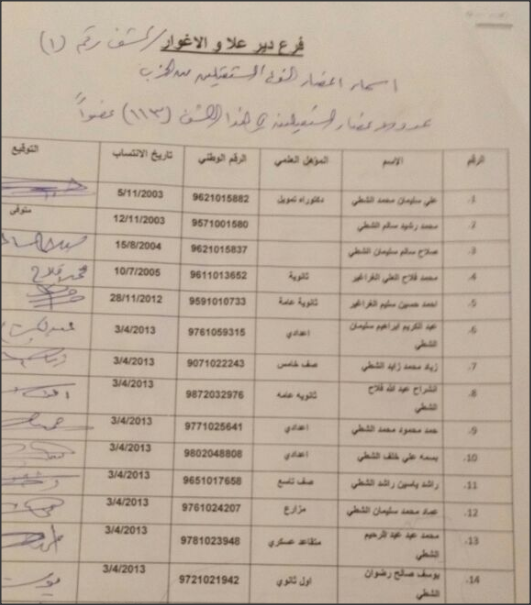 فرع دير علا و الاغوار / كشف رقم (١)
اسماء اعضاء الفرع المستقيلين من الحزب
عدد الاعضاء المستقيلين في هذا الكشف (١١٣) عضواً
الرقم الاسم المؤهل العلمي الرقم الوطني تاريخ الانتساب التوقيع
1. علي سليمان محمد الشطي دكتوراه تمويل 9621015882 5/11/2003
2. محمد رشيد سالم الشطي 9571001580 12/11/2003 متوفى
3. صلاح سالم سليمان الشطي 9621015837 15/8/2004
4. محمد فلاح العلي الغراغير ثانوية 9611013652 10/7/2005
5. احمد حسين سليم الغراغير ثانوية عامة 9591010733 28/11/2012
6. عبد الكريم ابراهيم سليمان الشطي اعدادي 9761059315 3/4/2013
7. زياد محمد زايد الشطي صف خامس 9071022243 3/4/2013
8. انشراح عبد الله فلاح الشطي ثانويه عامه 9872032976 3/4/2013
9. حمد محمود محمد الشطي اعدادي 9771025641 3/4/2013
10. بسمه علي خلف الشطي اعدادي 9802048808 3/4/2013
11. راشد ياسين راشد الشطي صف تاسع 9651017658 3/4/2013
12. عماد محمد سليمان الشطي مزارع 9761024207 3/4/2013
13. محمد عيد عبد الرحيم الشطي متقاعد عسكري 9781023948 3/4/2013
14. يوسف صالح رضوان الشطي اول ثانوي 9721021942 3/4/2013